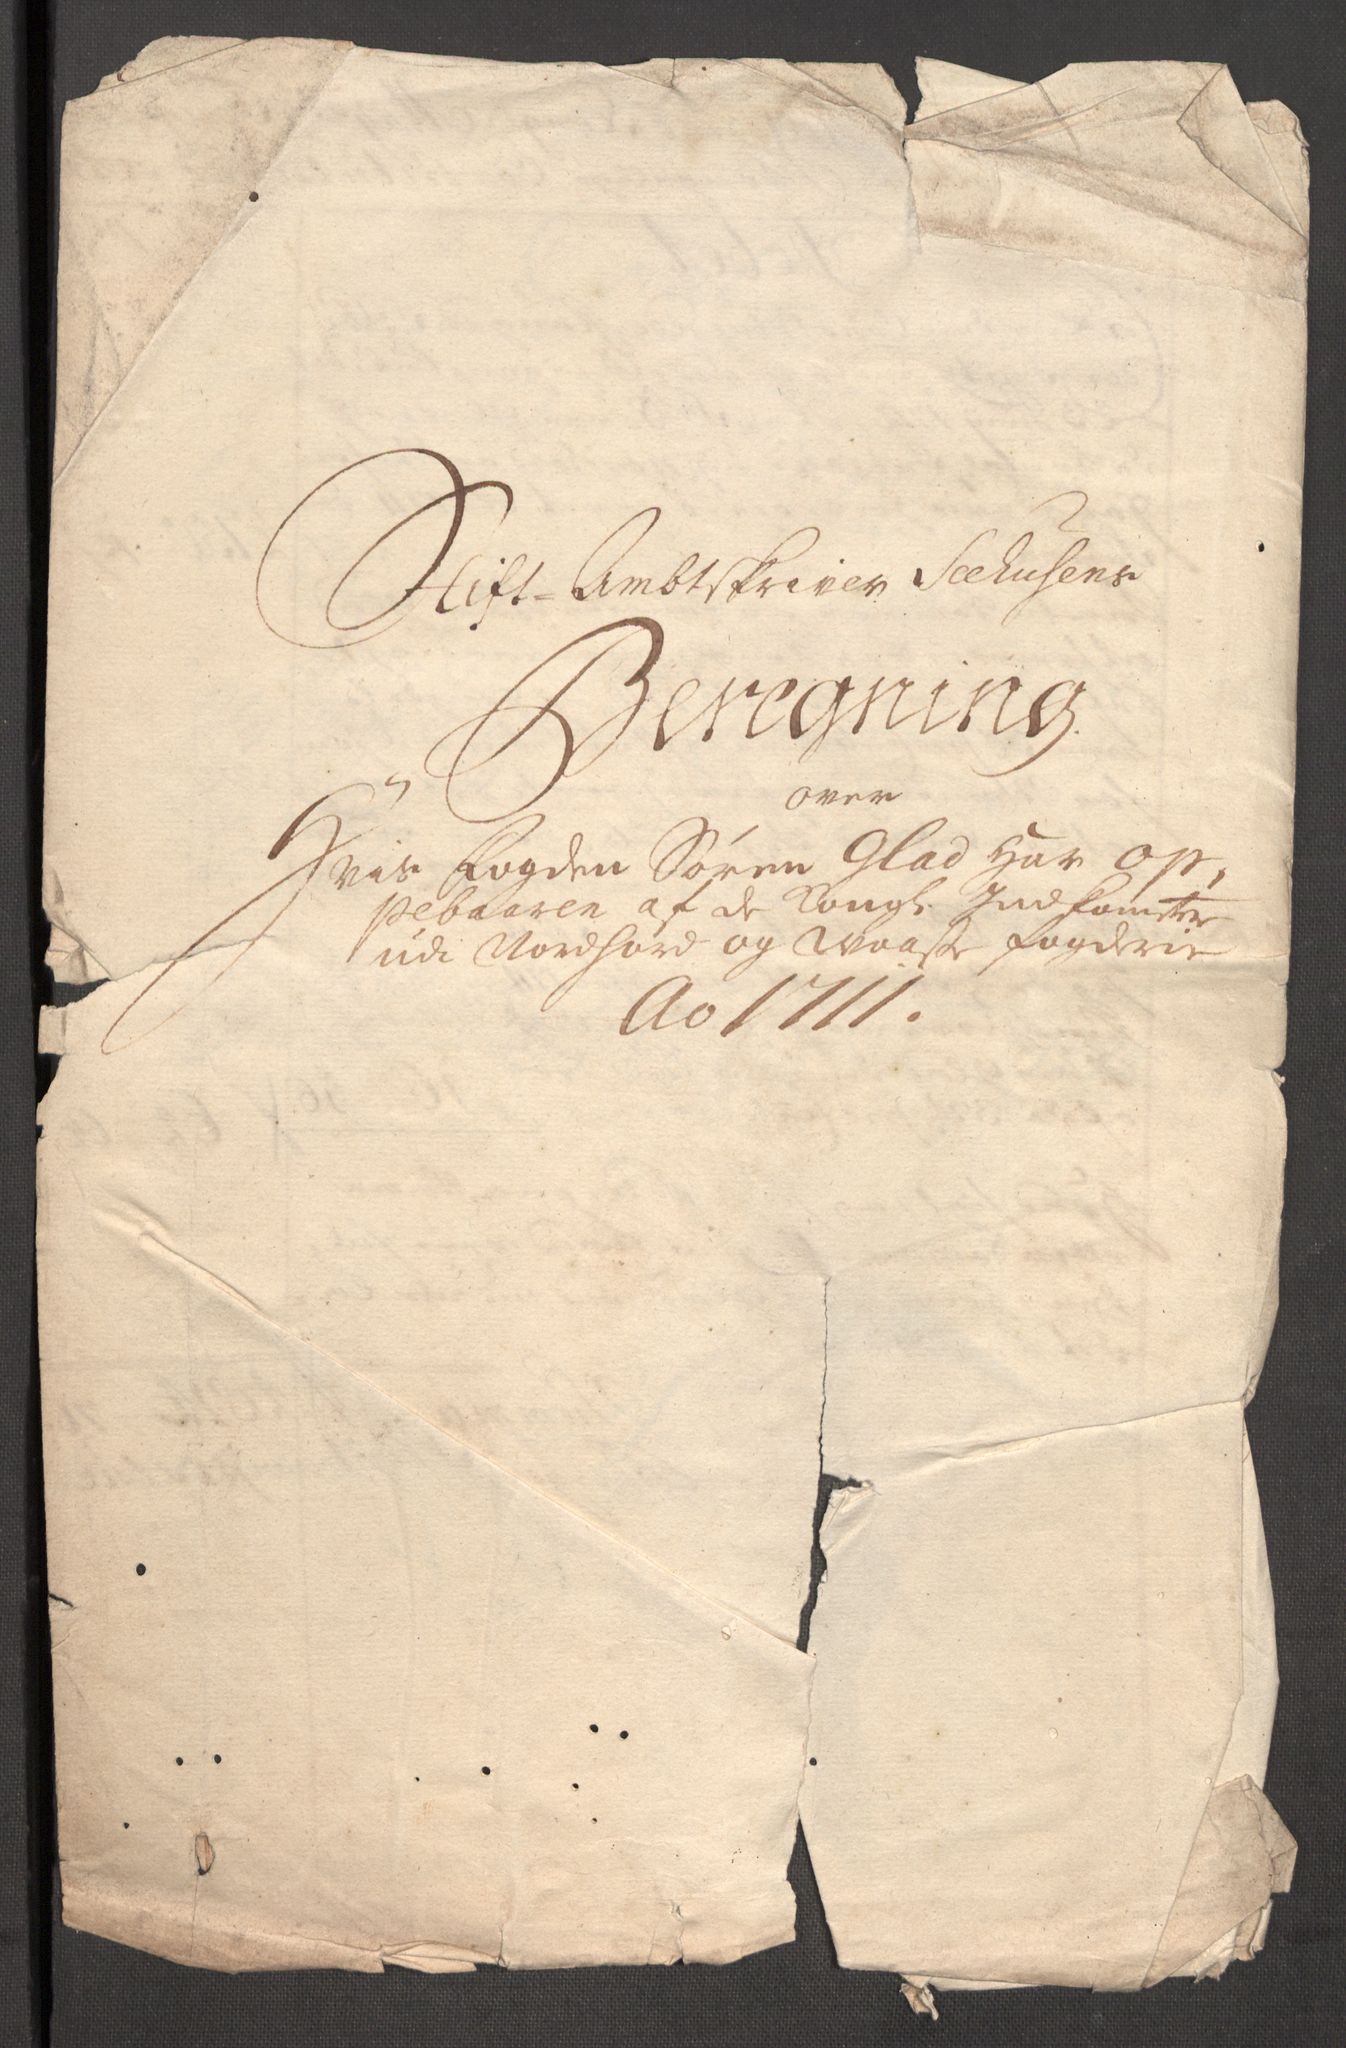 Stift-Ambtskriver Seehusens
Beregning
over
Hvis Fogden Sören Glad Har op,
pebaaren af de Kongl. Indkomster
udi Nordhord og Waaße fogderie
Ao 1711.